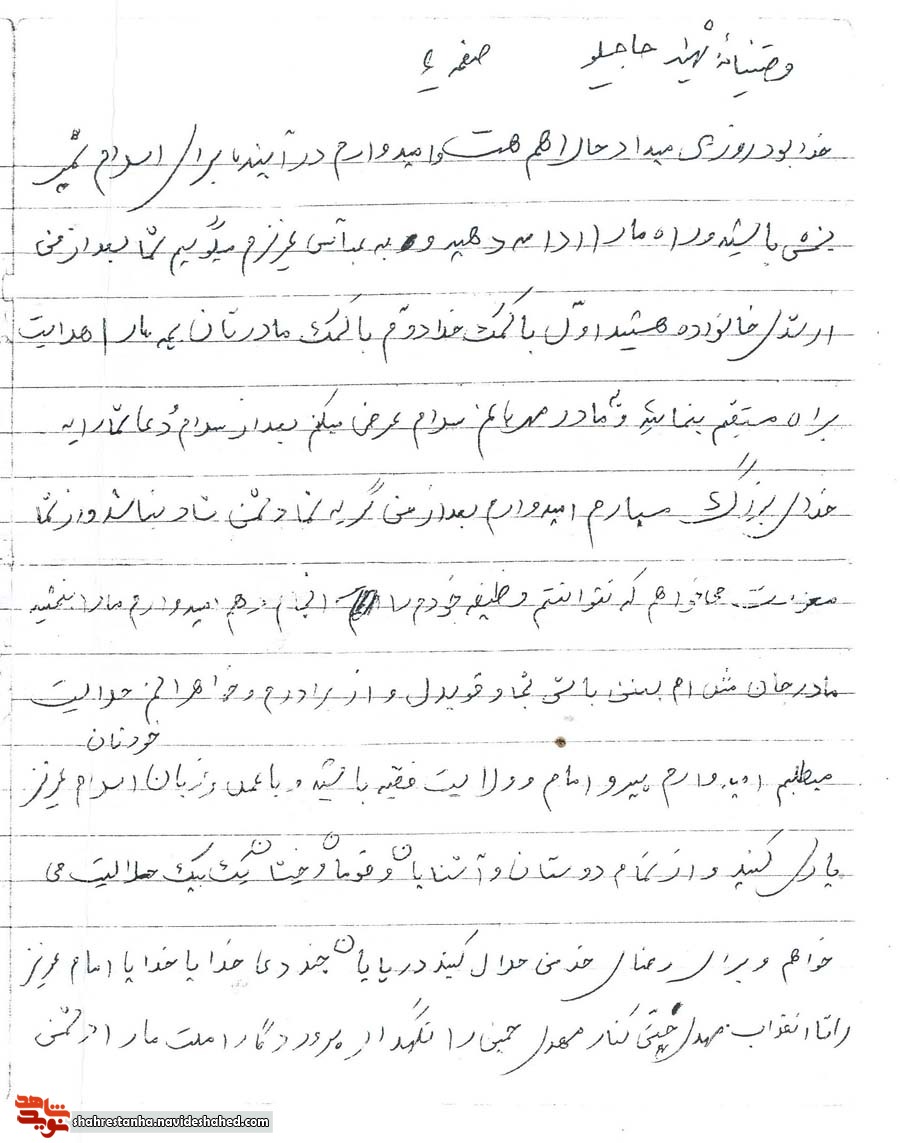 وصیتنامهٔ شهید حاجیلو صفحه ۴
خدا بود روزی میداد حالا هم هست و امیدوارم در آینده برای اسلام ثمر
بخش باشید و راه ما را ادامه دهید و به عباس عزیزم میگویم شما بعد از من
ارشد خانواده هستید اوّل با کمک خدا دوّم با کمک مادرتان بچه ها را هدایت
براه مستقیم بنمائید و مادر مهربانم سلام عرض میکنم بعد از سلام دُعا شما را به
خدای بزرگ میسپارم امیدوارم بعد از من گریه نکنید دشمن شاد نباشد و از شما
معذرت میخواهم که نتوانستم وظیفه خودم را انجام دهم امیدوارم ما را ببخشید
مادرجان مثل ام باش و قویدل و از برادرم و خواهرانم حلالیت
خودتان
میطلبم امیدوارم پیرو امام و ولایت فقیه باشید و با عمل و زبان اسلام عزیز
یاری کنید و از تمام دوستان و آشنایان و قومان و خویشان یک بیک حلالیت می
خواهم و برای رضای خدا حلال کنید در پایان چند دعا خدایا خدایا امام عزیز
را تا انقلاب مهدی حتی کنار مهدی خمینی را نگهدار پروردگارا ملت ما را از دشمن
شاهد
نوید
shahrestanha.navideshahed.com